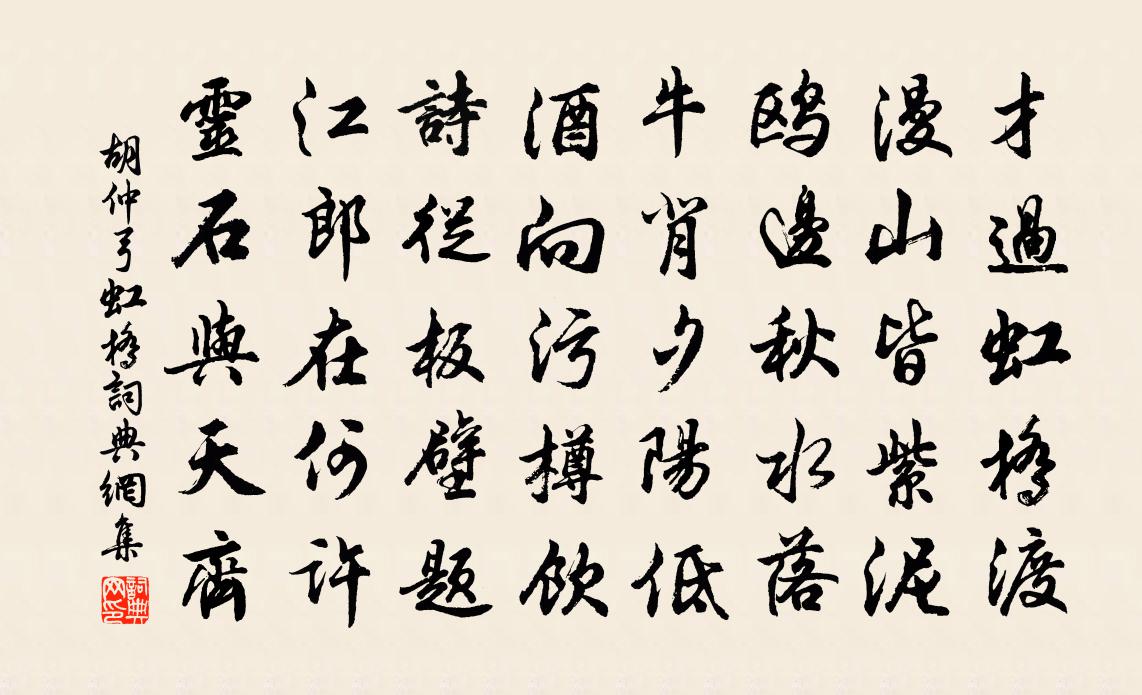 才過虹橋渡
漫山皆紫泥
鷗邊秋水落
牛背夕陽低
酒向污樽飲
詩從板壁題
江郎在何許
靈石與天齊
胡仲弓虹橋詞典網集
詞典網印